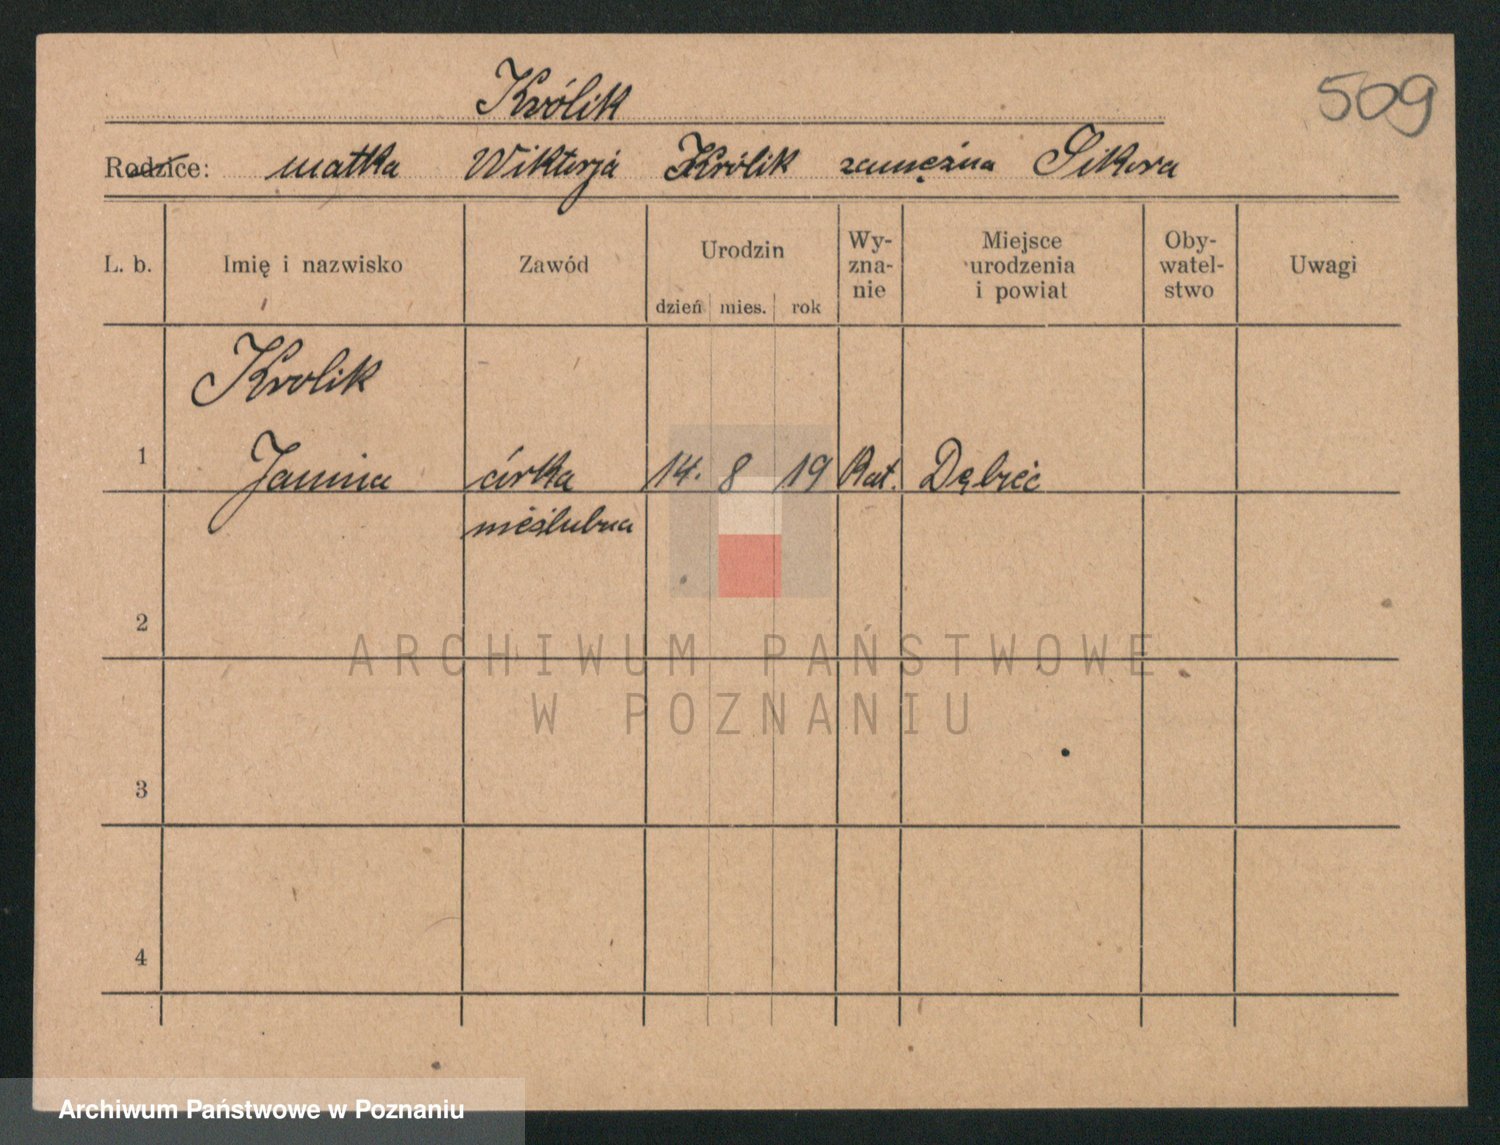 Królik
509
Rodzice: matka Wiktorja Królik zamężna Sikora
L. b.
Imię i nazwisko
Zawód
Urodzin
dzień
mies.
rok
Wy-
zna-
nie
Miejsce
urodzenia
i powiat
Oby-
watel-
stwo
Uwagi
Krolik
1 Janina córka 14. 8 19 Kat. Dębieć
nieślubna
2
ARCHIWUM PAŃSTWOWE
W POZNANIU
3
4
Archiwum Państwowe w Poznaniu